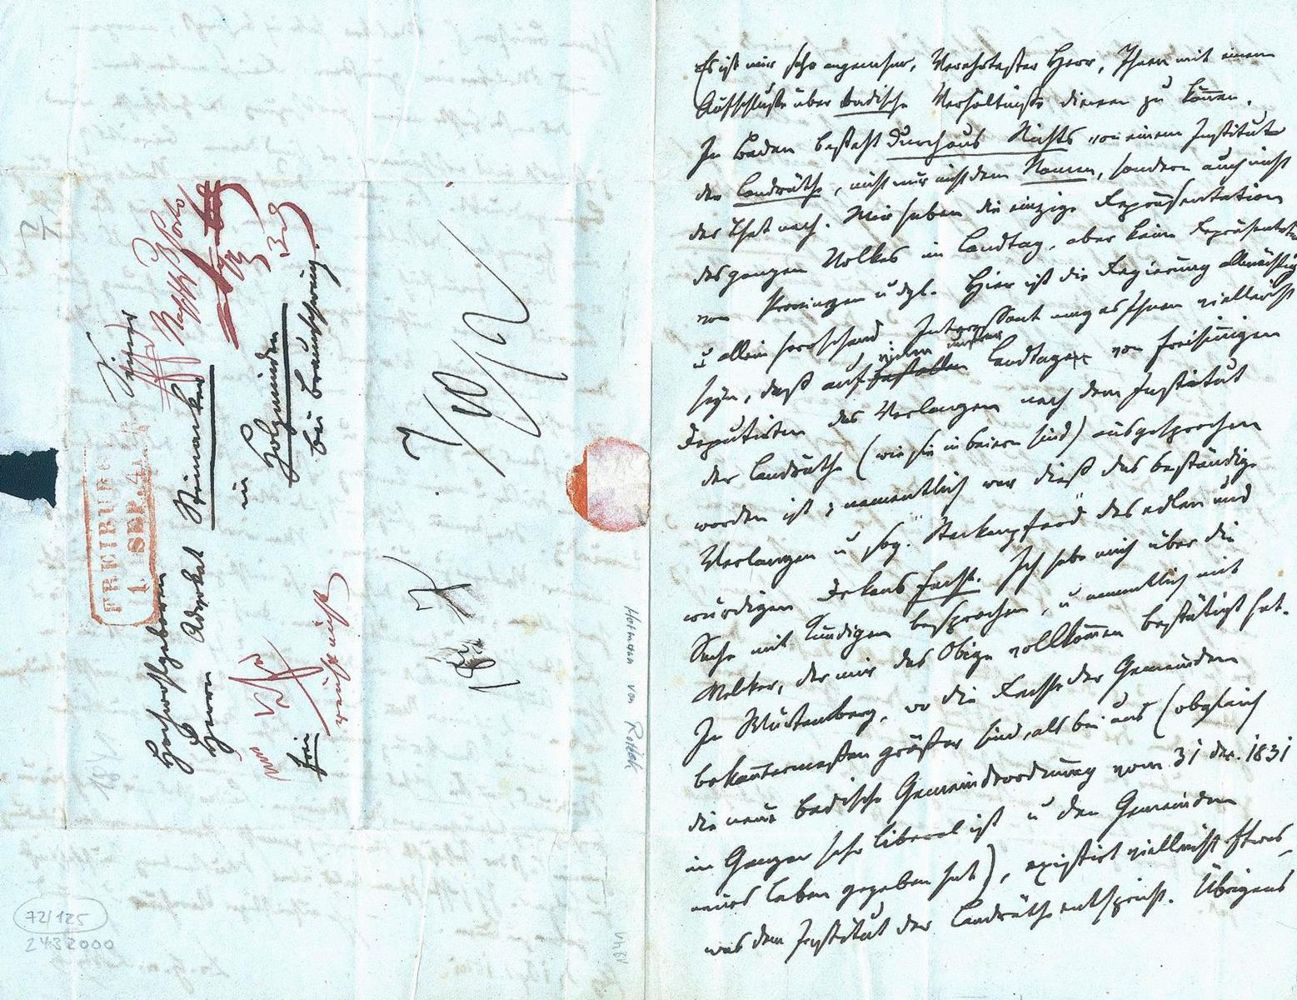 Es ist mir sehr angenehm, Verehrtester Herr, Ihnen mit einem
Aufschlusse über badische Verhältnisse dienen zu können.
In Baden besteht durchaus Nichts von einem Institute
der Landräthe, nicht nur nicht dem Namen, sondern auch nicht
der That nach. Wir haben die einzige Repräsentation
des ganzen Volkes im Landtag, aber keine Repräsentation
von Provinzen u dgl. Hier ist die Regierung allmächtig
u allein herrschend. Interessant mag es Ihnen vielleicht
seyn, daß auf vielen unserer Landtage von freisinnigen
Deputirten das Verlangen nach dem Institut
der Landräthe (wie sie in Baiern sind) ausgesprochen
worden ist; namentlich war dieß das beständige
Verlangen u sog. "Steckenpferd" des edlen und
würdigen Dekans Fecht. Ich habe mich über die
Sache mit Kundigen besprochen, u namentlich mit
Welker, der mir das Obige vollkommen bestätigt hat.
In Würtemberg, wo die Rechte der Gemeinden
bekanntermaßen größer sind, als bei uns (obgleich
die neue badische Gemeindeordnung vom 31 Dez. 1831
im Ganzen sehr liberal ist u den Gemeinden
neues Leben gegeben hat), existirt vielleicht Etwas,
was dem Institut der Landräthe entspricht. Übrigens
Seiner
Hochwohlgeboren
Herrn Advokat Steinacker
in
Holzminden
bei Braunschweig.
frei
FREIBURG
1. SEP. 4
Hofmann von Rotteck
72/125
2432000